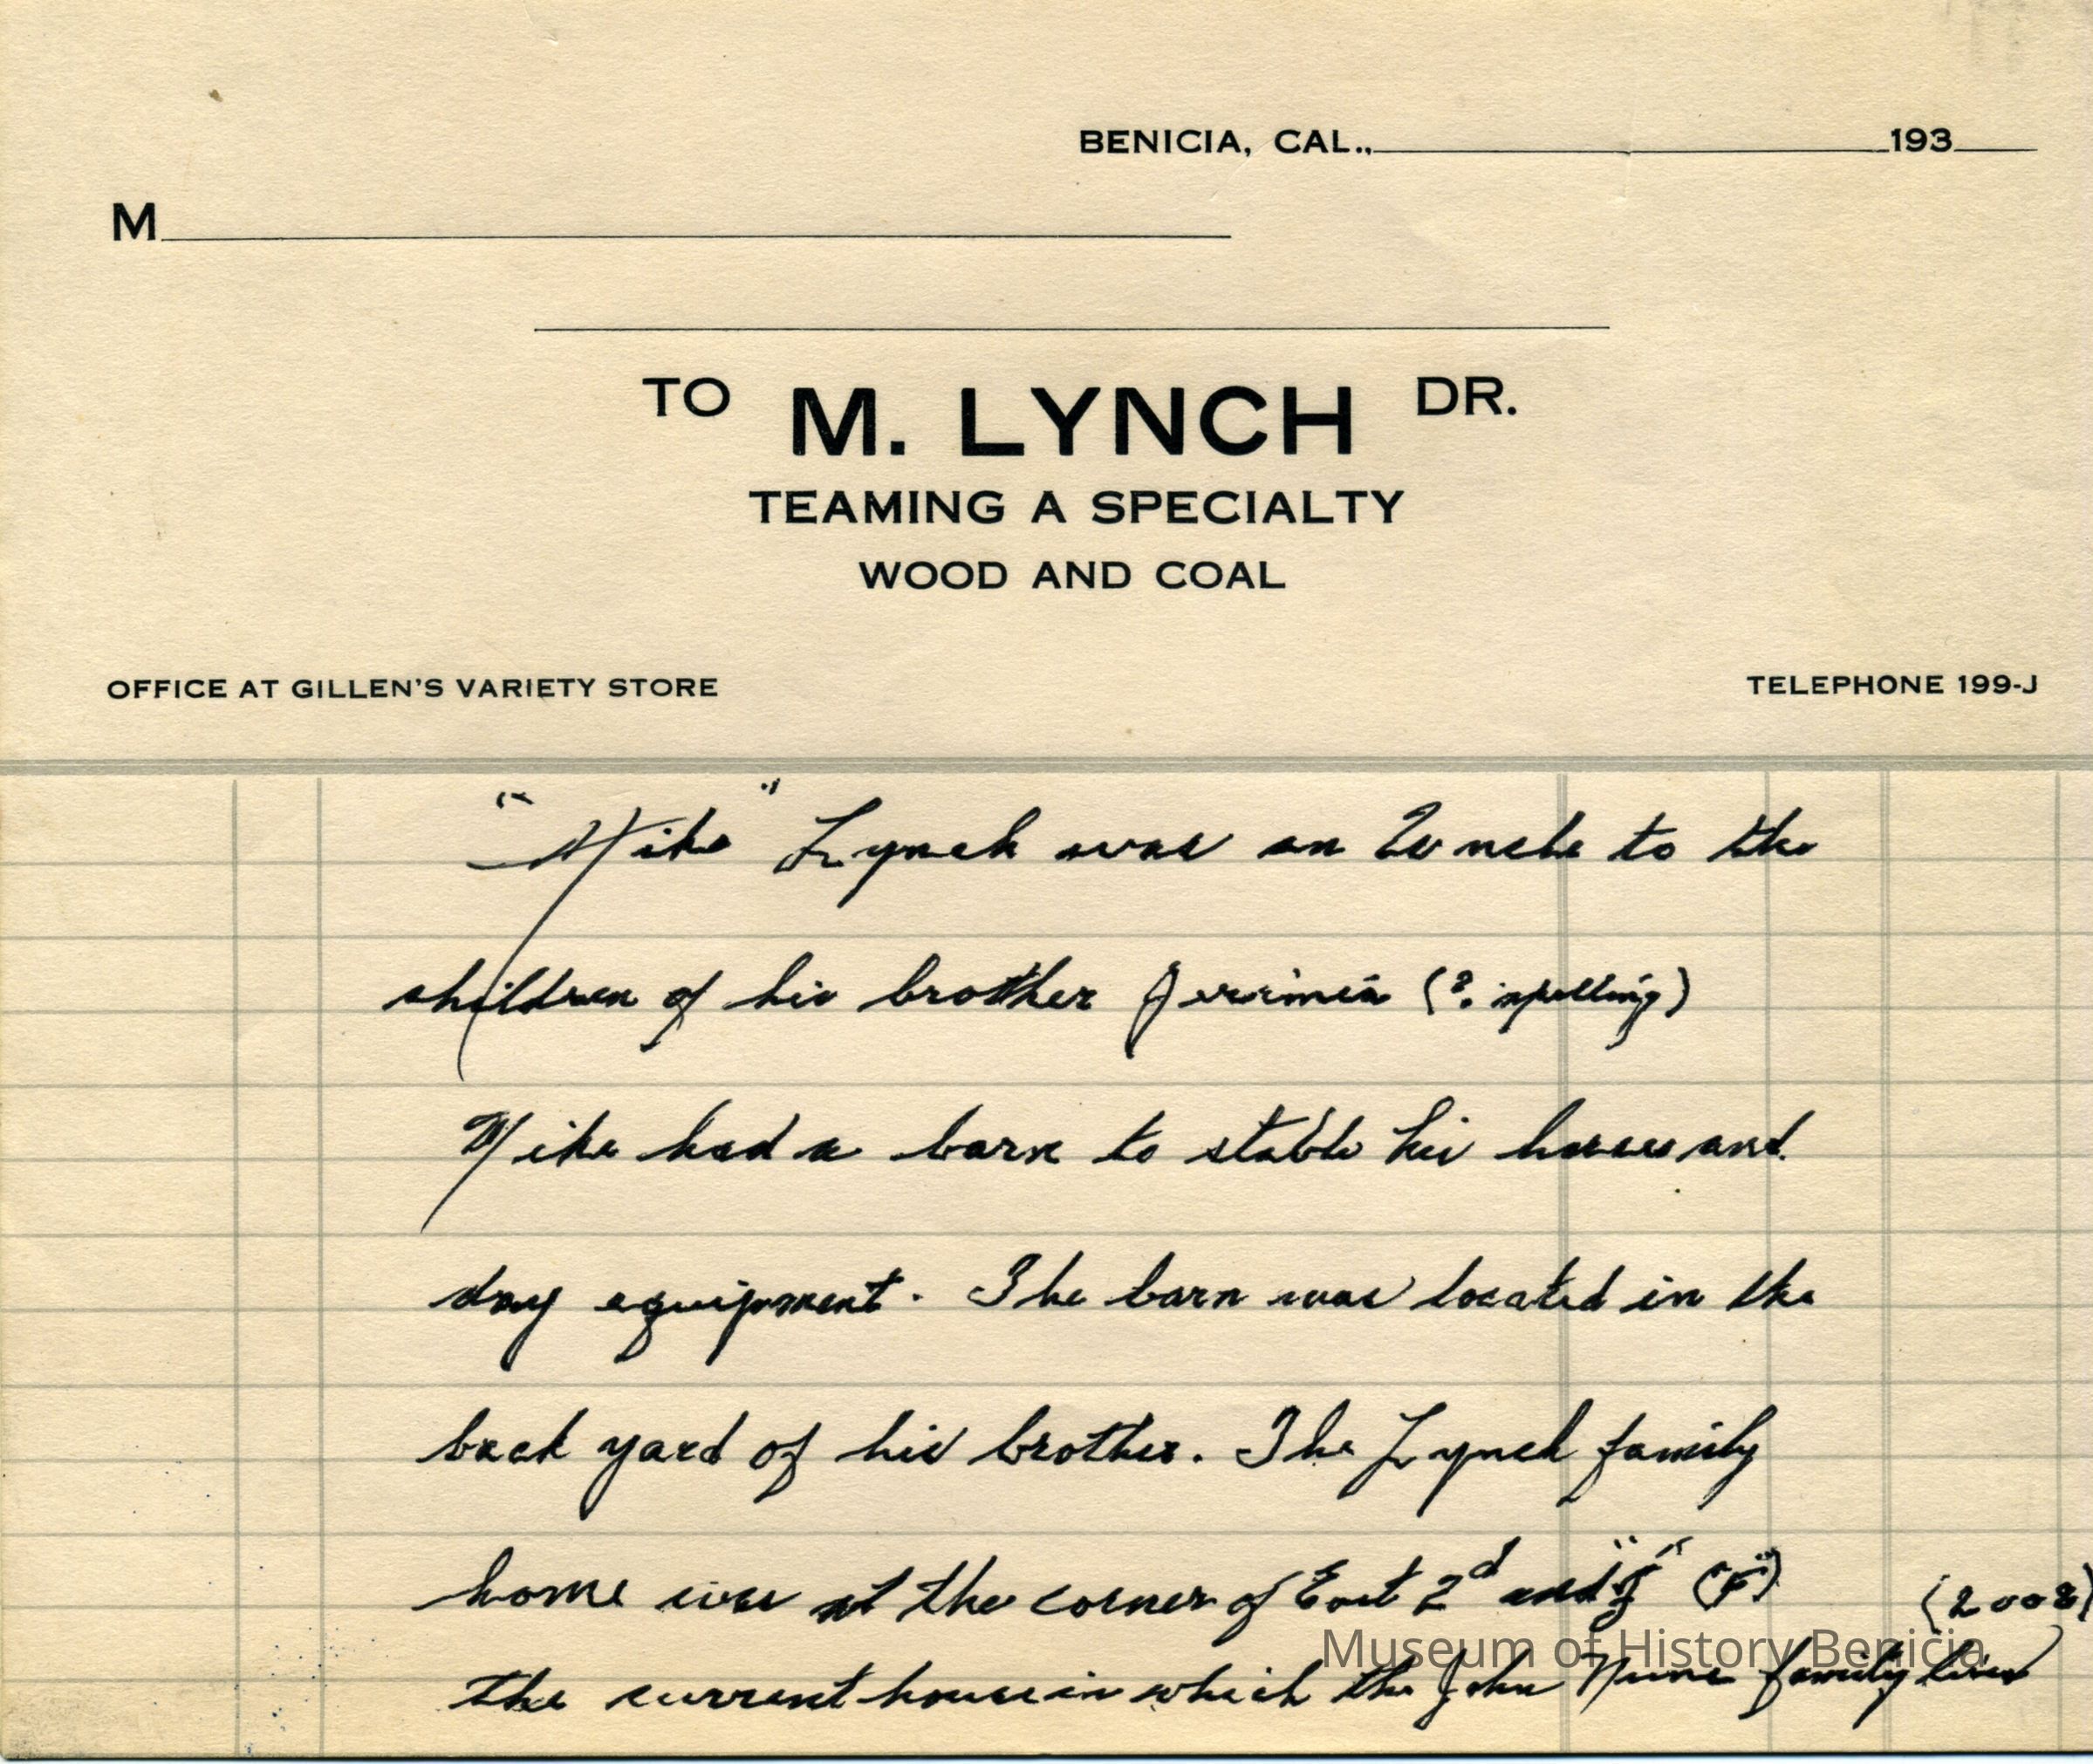 BENICIA, CAL., 193
M
TO M. LYNCH DR.
TEAMING A SPECIALTY
WOOD AND COAL
OFFICE AT GILLEN'S VARIETY STORE TELEPHONE 199-J
"Mike" Lynch was an Uncle to the
children of his brother Jerrimia (? spelling)
Mike had a barn to stable his horses and
dray equipment. The barn was located in the
back yard of his brother. The Lynch family
home was at the corner of East 2d and (F) (2008)
the current house in which the John family lives
Museum of History Benicia